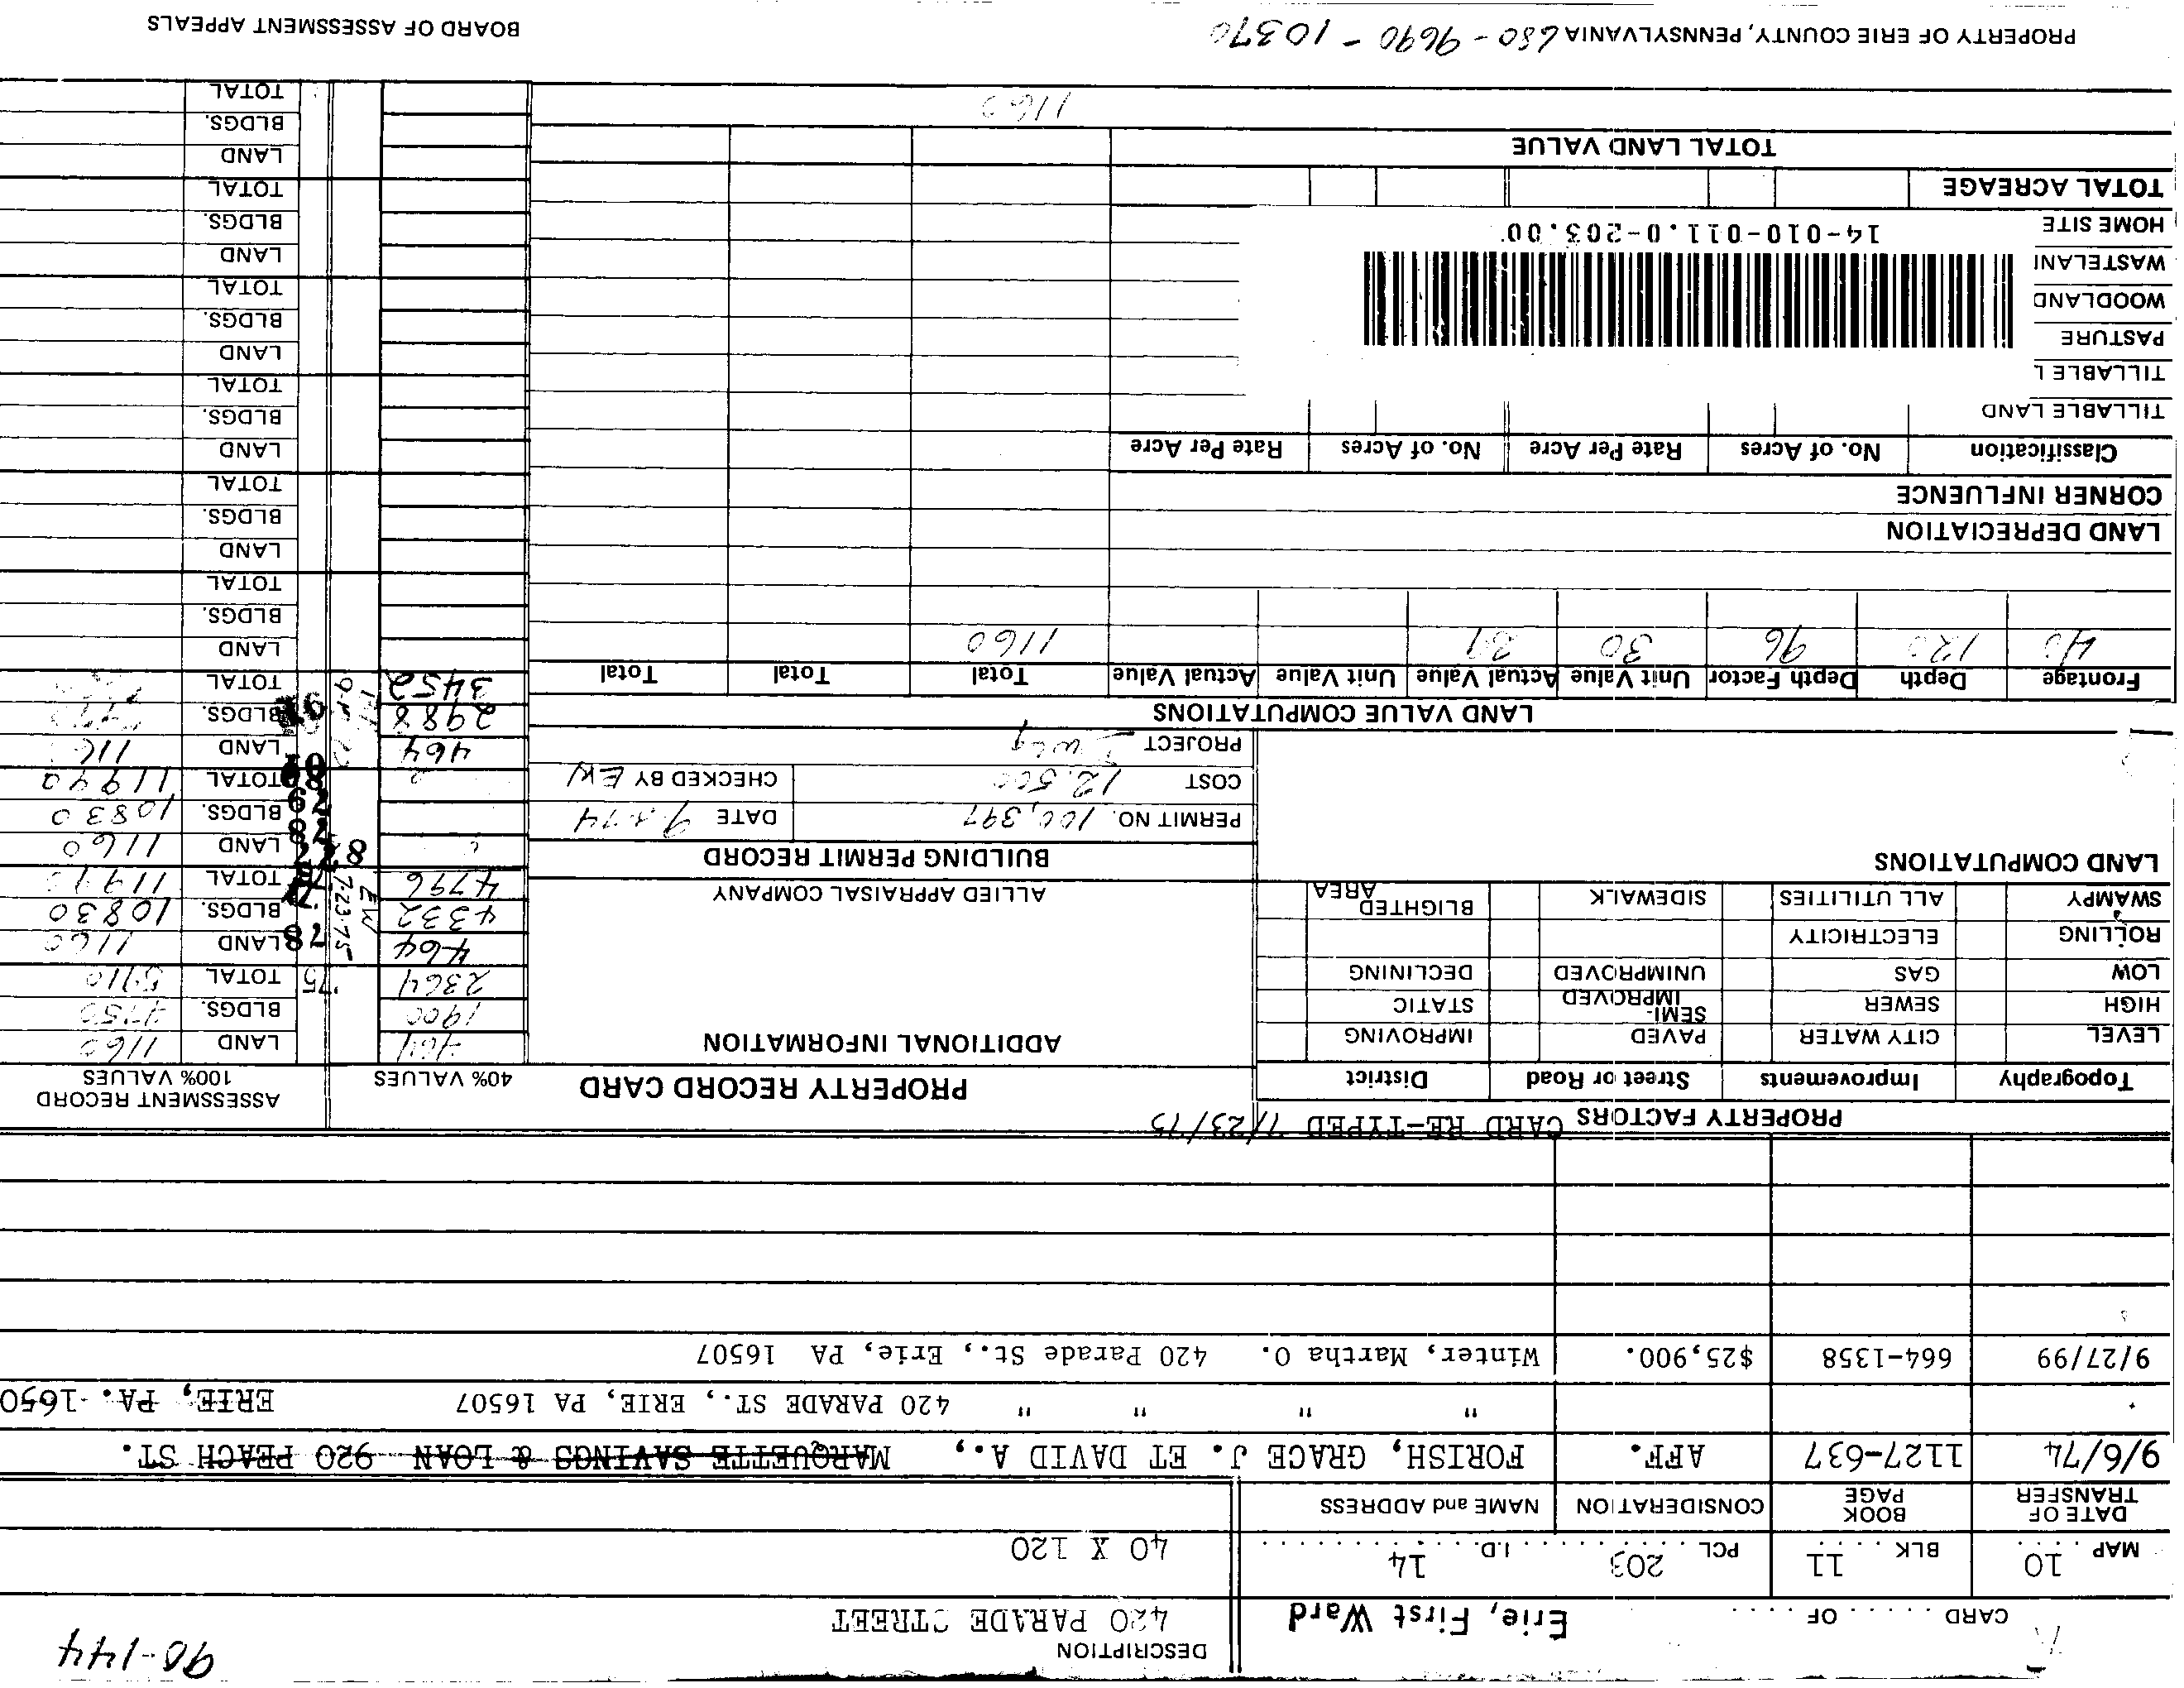 90-144
CARD . . . . . OF . . . . .
Erie, First Ward
DESCRIPTION
420 PARADE STREET
MAP 10 BLK 11 PCL 203 I.D. 14
40 X 120
DATE OF TRANSFER BOOK PAGE CONSIDERATION NAME and ADDRESS
9/6/74 1127-637 AFF. FORISH, GRACE J. ET DAVID A., MARQUETTE SAVINGS & LOAN 920 PEACH ST.
" " " " 420 PARADE ST., ERIE, PA 16507 ERIE, PA. 1650
9/27/99 664-1358 $25,900. Winter, Martha O. 420 Parade St., Erie, PA 16507
PROPERTY FACTORS CARD RE-TYPED 7/23/75
Topography Improvements Street or Road District
LEVEL CITY WATER PAVED IMPROVING
HIGH SEWER SEMI-IMPROVED STATIC
LOW GAS UNIMPROVED DECLINING
ROLLING ELECTRICITY
SWAMPY ALL UTILITIES SIDEWALK BLIGHTED AREA
LAND COMPUTATIONS
PROPERTY RECORD CARD
ADDITIONAL INFORMATION
ALLIED APPRAISAL COMPANY
BUILDING PERMIT RECORD
PERMIT NO. 100,397 DATE
COST 12,500 CHECKED BY EW
PROJECT
40% VALUES
ASSESSMENT RECORD
100% VALUES
464 LAND 1160
1900 BLDGS. 4750
2364 '75 TOTAL 5910
464 78 LAND 1160
4332 BLDGS. 10830
4796 TOTAL 11990
7-23-75
EW
LAND 1160
BLDGS. 10830
TOTAL 11990
464 LAND 116
2988 BLDGS.
3452 TOTAL
LAND VALUE COMPUTATIONS
Frontage Depth Depth Factor Unit Value Actual Value Unit Value Actual Value Total Total Total
40 120 96 30 29 1160
LAND
BLDGS.
TOTAL
LAND DEPRECIATION
CORNER INFLUENCE
LAND
BLDGS.
TOTAL
Classification No. of Acres Rate Per Acre No. of Acres Rate Per Acre
TILLABLE LAND
TILLABLE L
PASTURE
WOODLAND
WASTELAN
HOME SITE
14-010-011.0-203.00
TOTAL ACREAGE
TOTAL LAND VALUE
1160
LAND
BLDGS.
TOTAL
LAND
BLDGS.
TOTAL
LAND
BLDGS.
TOTAL
LAND
BLDGS.
TOTAL
PROPERTY OF ERIE COUNTY, PENNSYLVANIA 680-9690-10370
BOARD OF ASSESSMENT APPEALS